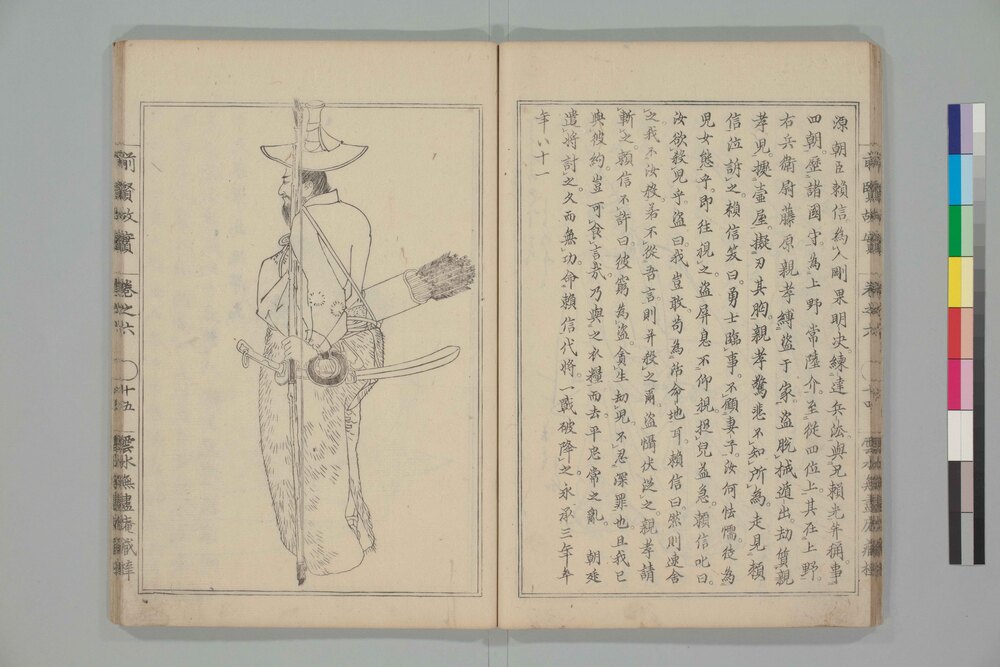 源 朝臣賴信為人剛果明决練達兵法與兄賴光並稱事
四朝歷諸國守為上野常陸介至從四位上其在上野
右兵衛尉藤原親孝縛盜于家盜脫械遁出劫質親
孝兒據壷屋擬刃其胸親孝驚悲不知所為走見賴
信泣訴之賴信笑曰勇士臨事不顧妻子汝何怯懦徒為
兒女態乎即往視之盜屏息不仰視捉兒益急賴信叱曰
汝欲殺兒乎盜曰我豈敢苟為活命地耳賴信曰然則速舍
之我不汝殺若不從吾言則并殺之爾盜懾伏從之親孝請
斬之賴信不許曰彼窮為盜貪生劫兒不忍深罪也且我已
與彼約豈可食言哉乃與之衣糧而去平忠常之亂 朝廷
遣將討之久而無功命賴信代將一戰破降之永承三年卒
年八十一
前賢故實 卷之六 十五 雲水無盡庵藏梓